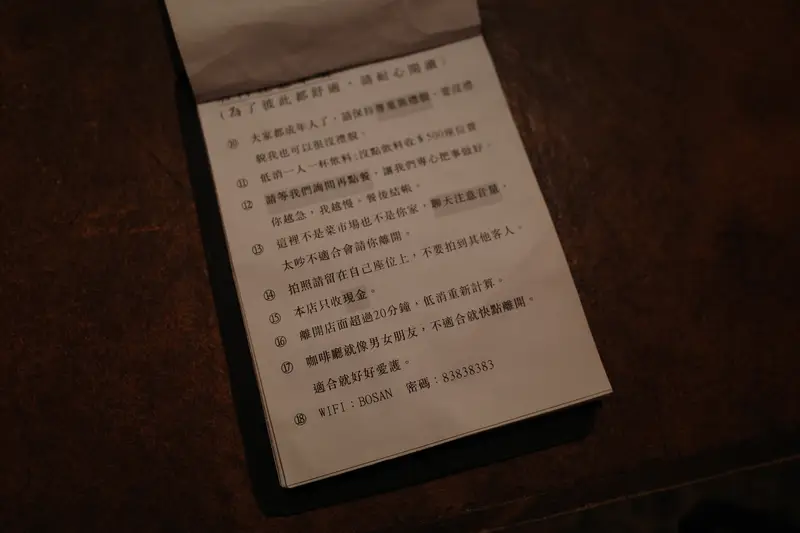 (為了彼此都舒適，請耐心閱讀)
⑩ 大家都成年人了，請保持尊重與禮貌，要沒禮
貌我也可以很沒禮貌。
⑪ 低消一人一杯飲料；沒點飲料收$500座位費
⑫ 請等我們詢問再點餐，讓我們專心把事做好。
你越急，我越慢。餐後結帳。
⑬ 這裡不是菜市場也不是你家，聊天注意音量，
太吵不適合會請你離開。
⑭ 拍照請留在自己座位上，不要拍到其他客人。
⑮ 本店只收現金。
⑯ 離開店面超過20分鐘，低消重新計算。
⑰ 咖啡廳就像男女朋友，不適合就快點離開。
適合就好好愛護。
⑱ WIFI：BOSAN 密碼：83838383